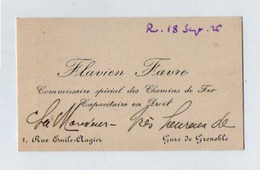 R. 18 Sep. 26
Flavien Favre
Commissaire spécial des Chemins de Fer
Capacitaire en Droit
Cher Monsieur - Très heureux de
1, Rue Emile-Augier Gare de Grenoble